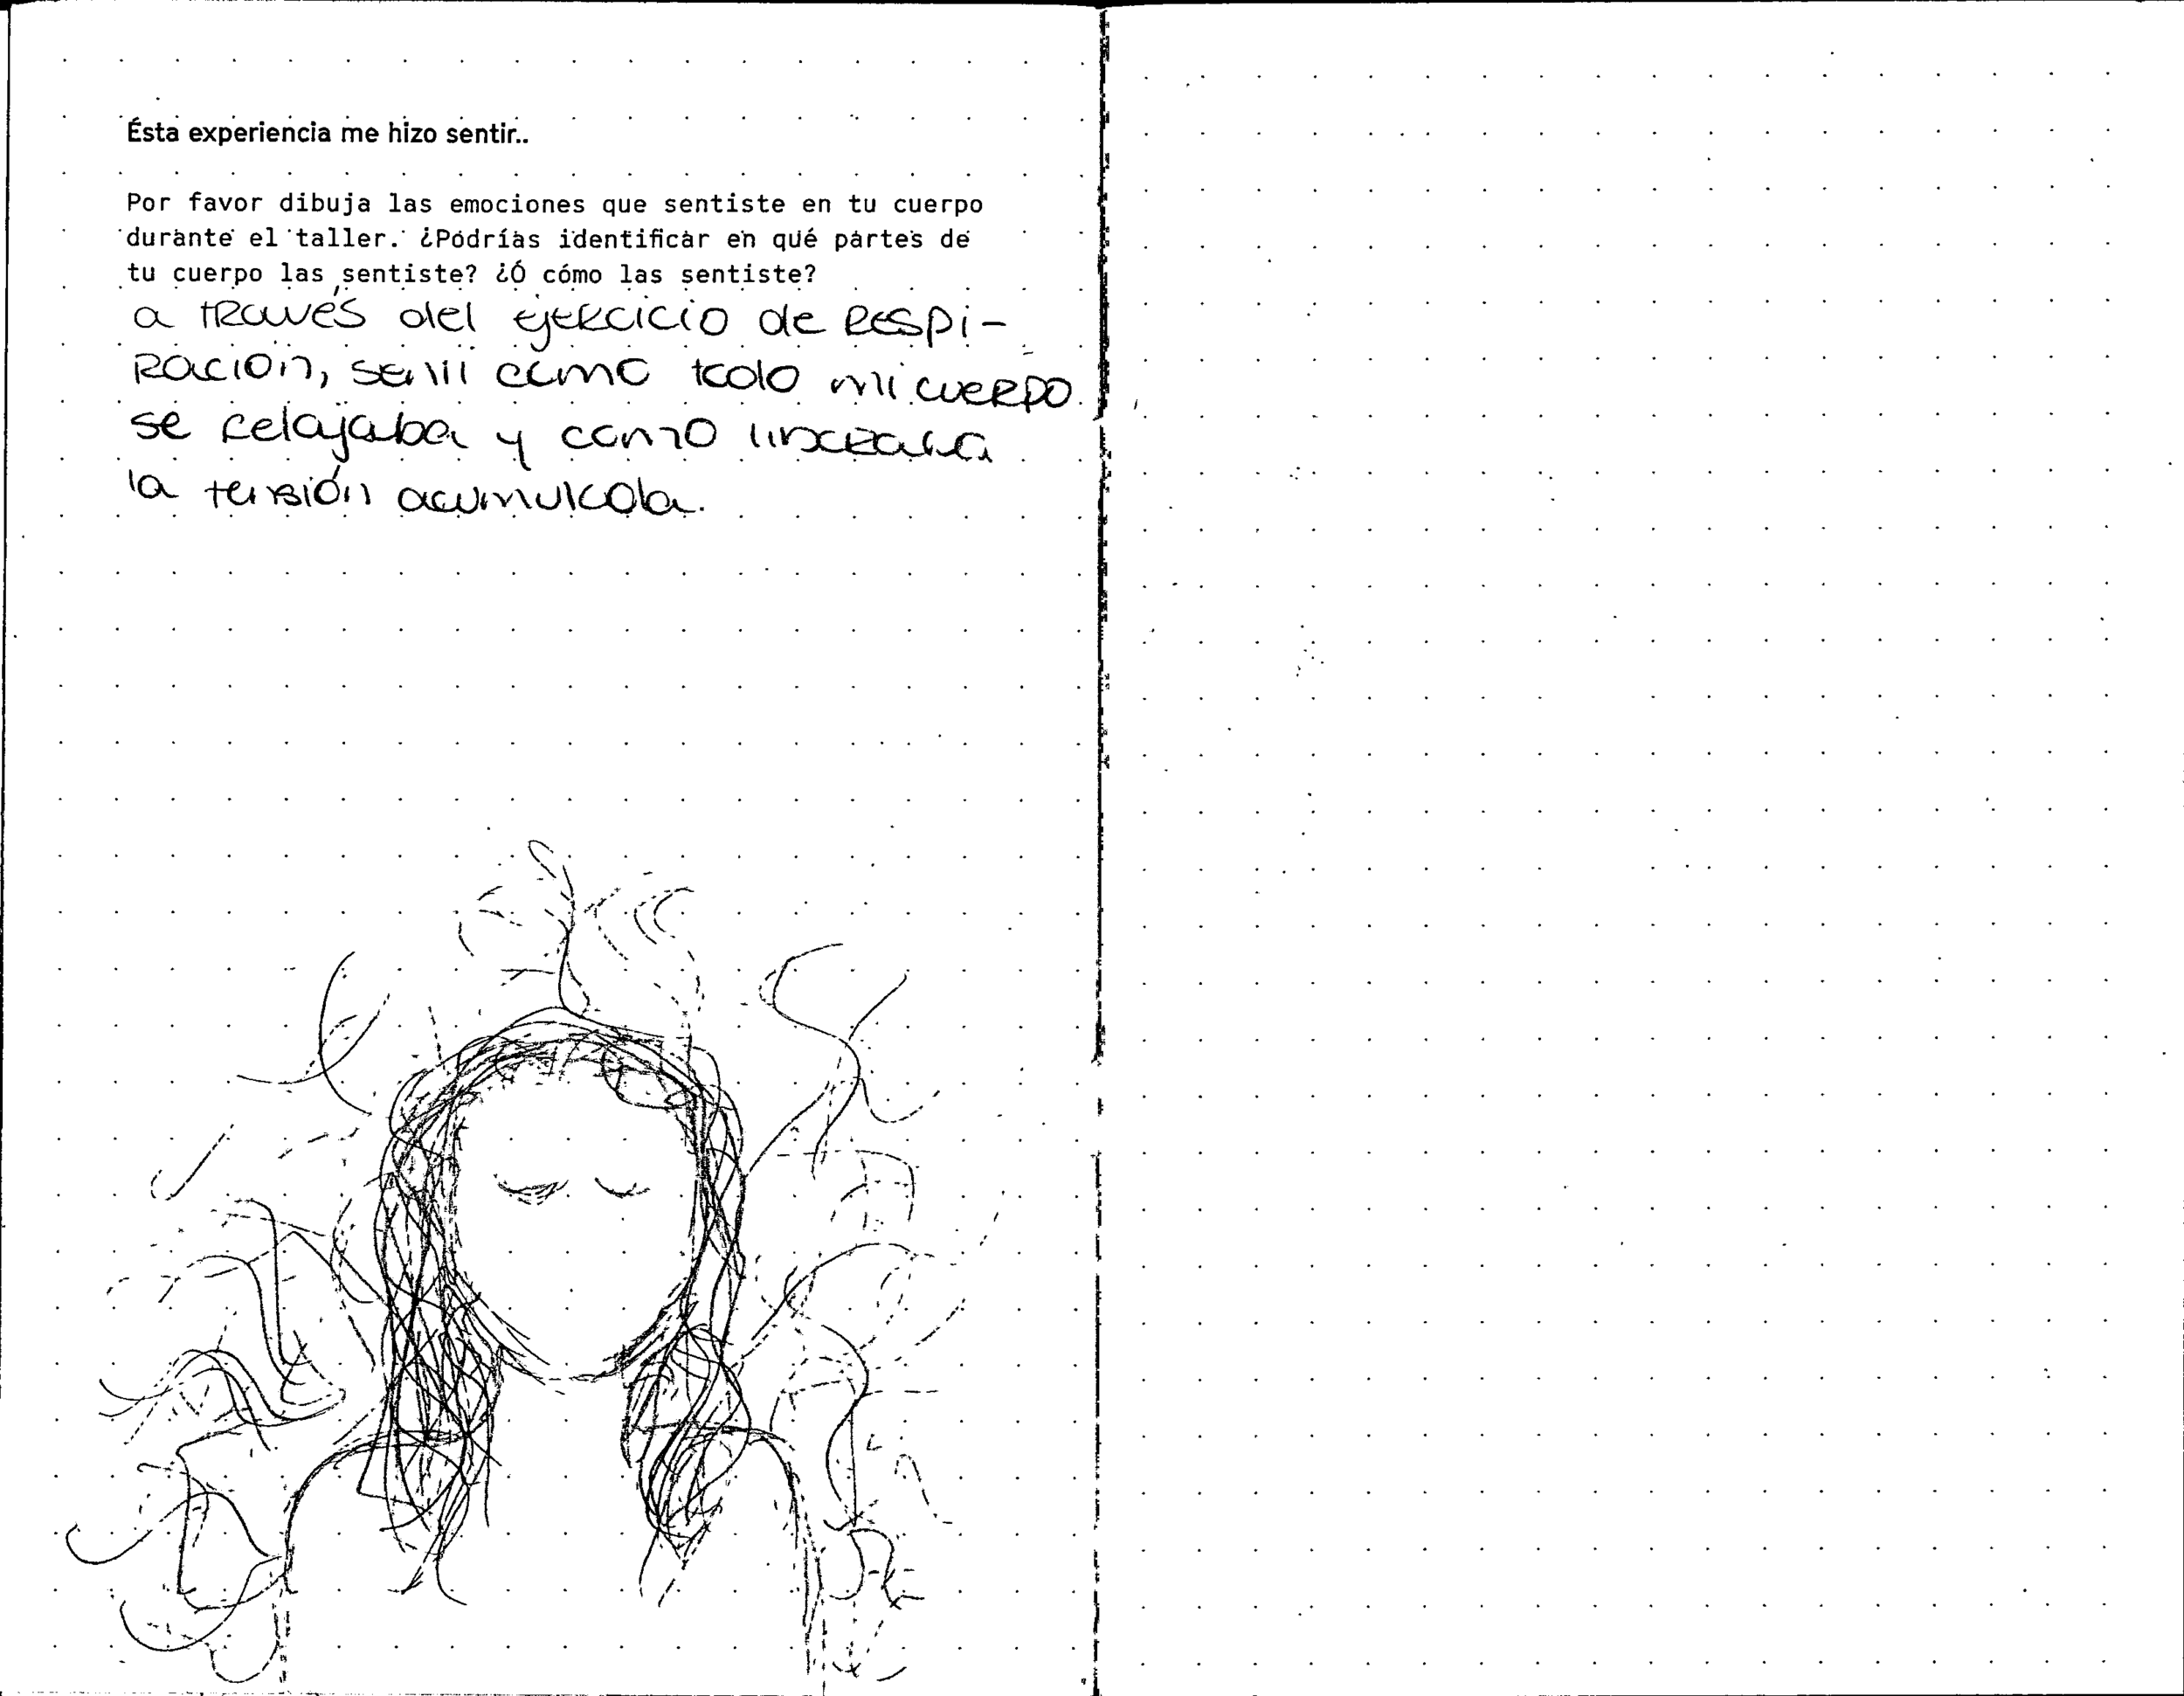 Ésta experiencia me hizo sentir..
Por favor dibuja las emociones que sentiste en tu cuerpo
durante el taller. ¿Podrías identificar en qué partes de
tu cuerpo las sentiste? ¿Ó cómo las sentiste?
a través del ejercicio de respi-
ración, sentí como todo mi cuerpo
se relajaba y como liberaba
la tensión acumulada.